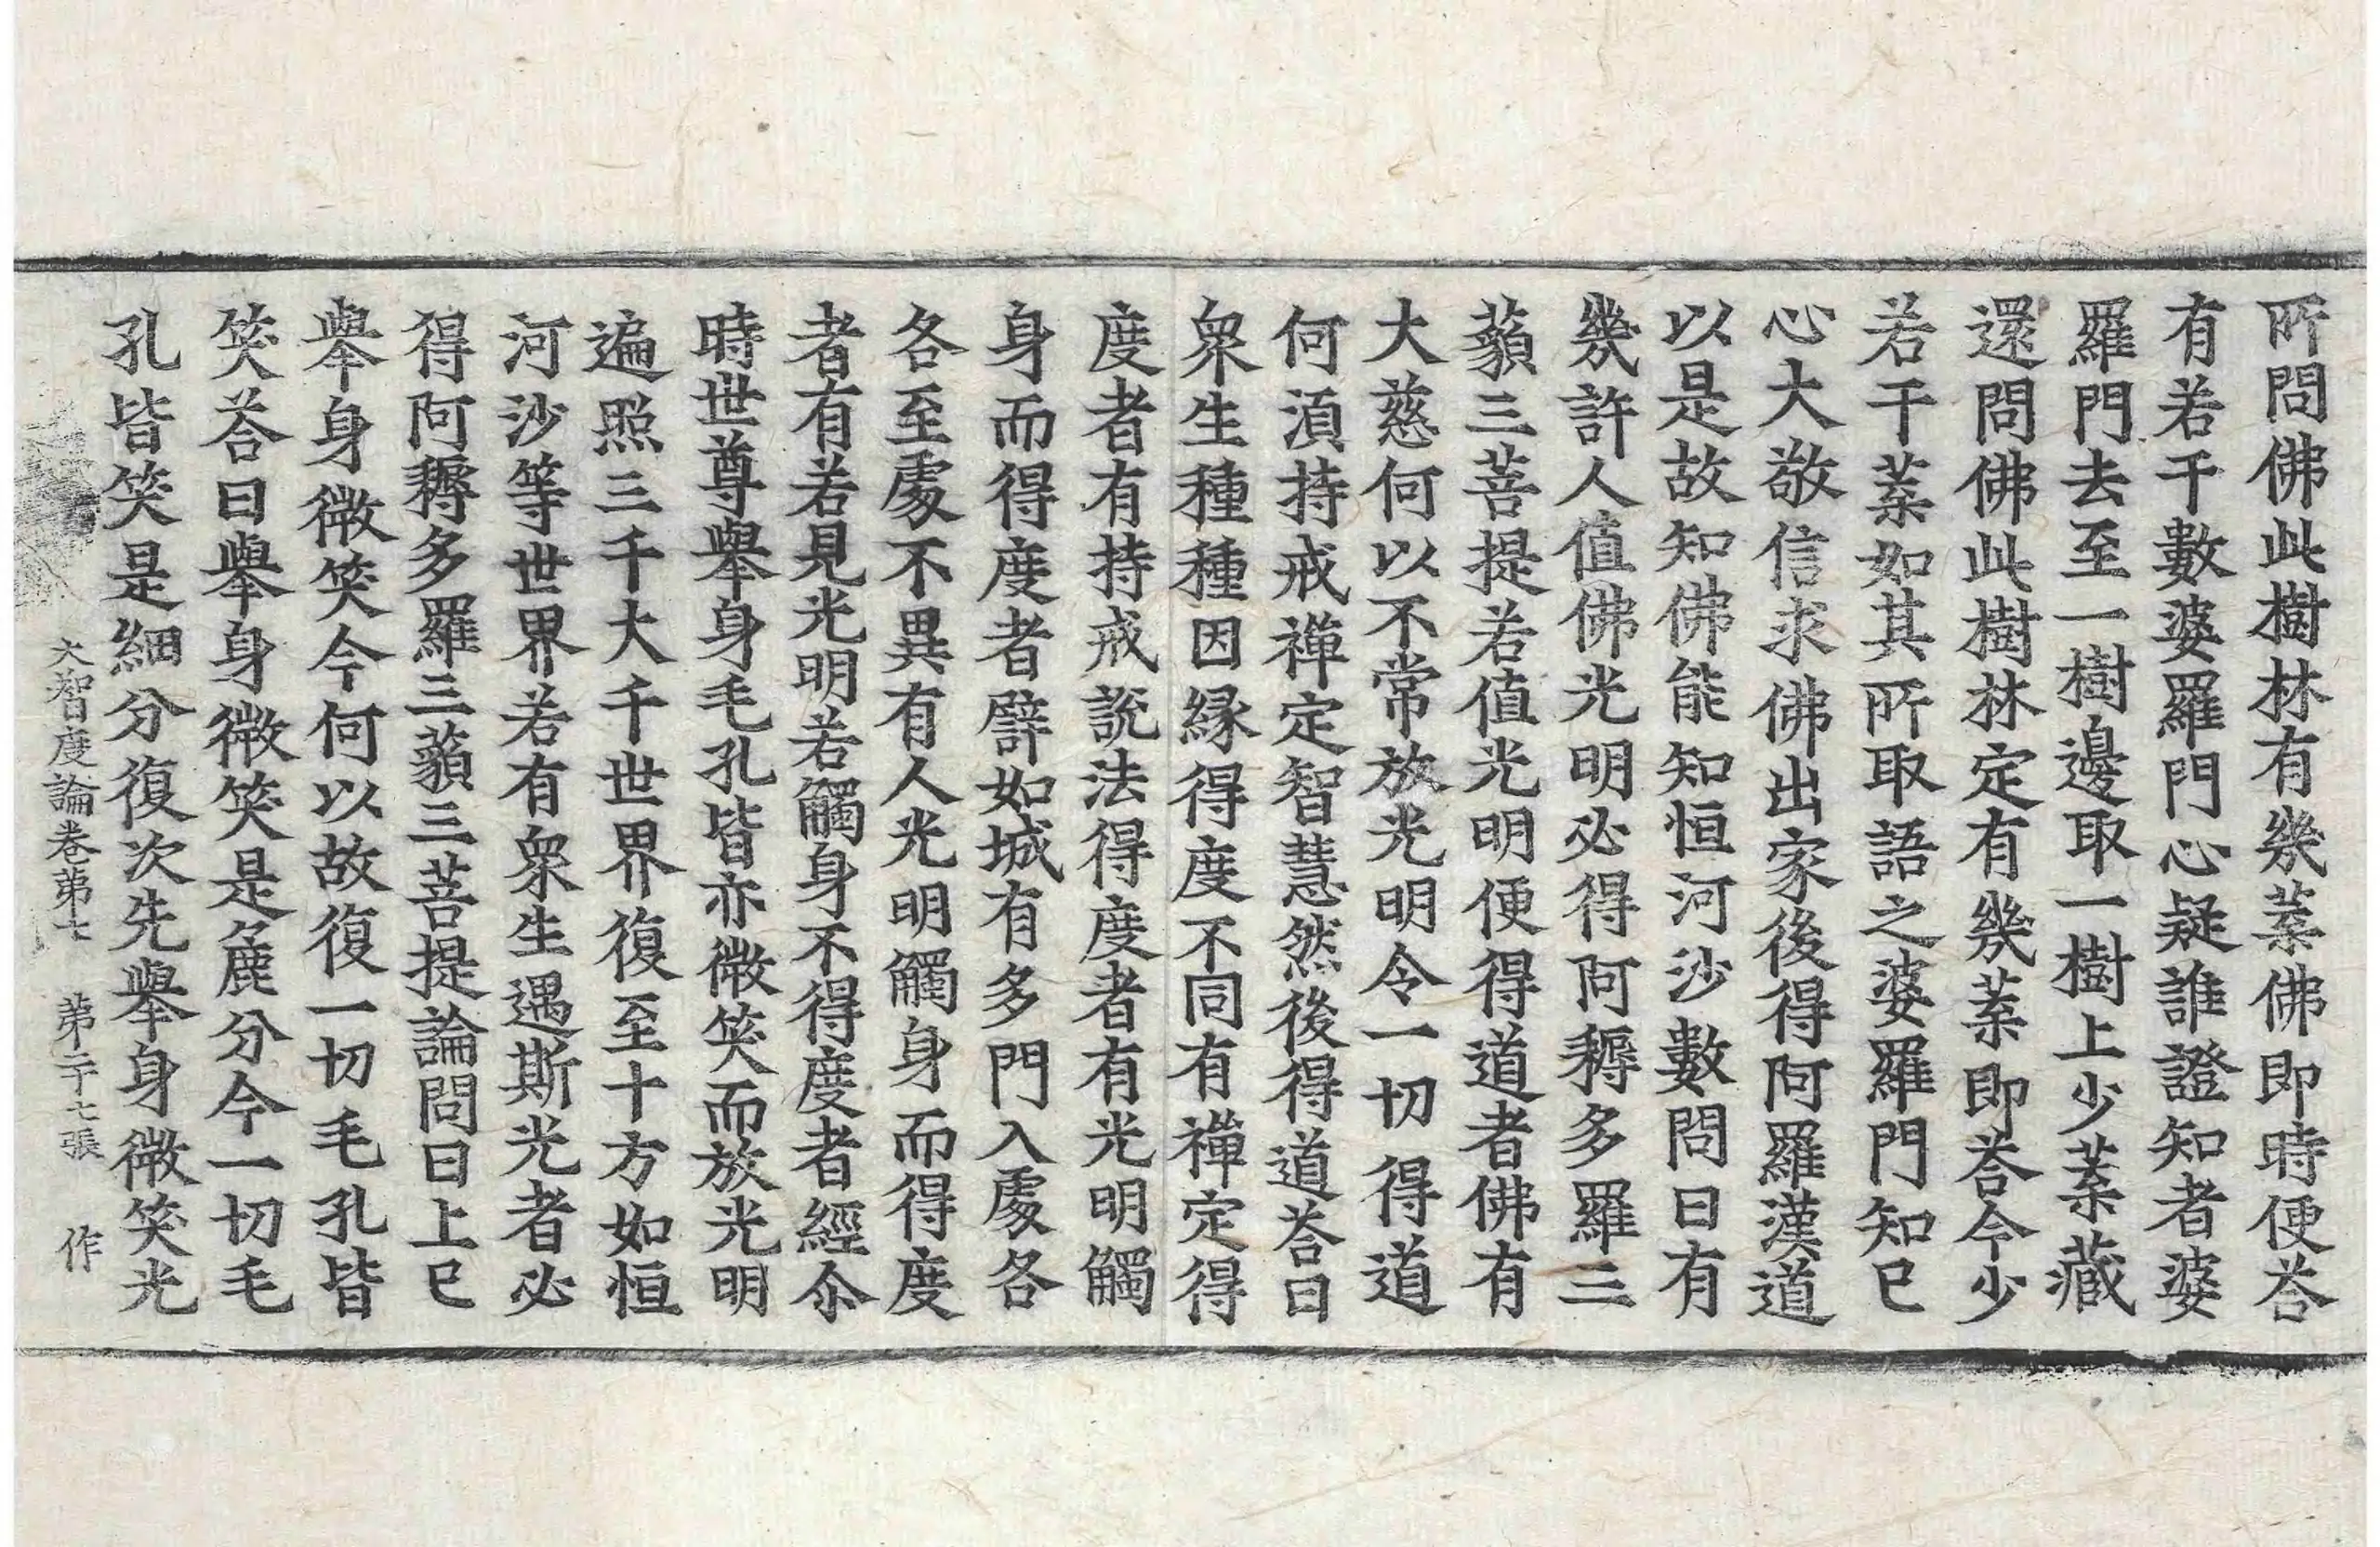 所問佛此樹林有幾葉佛即時便荅
有若干數婆羅門心疑誰證知者婆
羅門去至一樹邊取一樹上少葉藏
還問佛此樹林定有幾葉即荅今少
若干葉如其所取語之婆羅門知已
心大敬信求佛出家後得阿羅漢道
以是故知佛能知恒河沙數問曰有
幾許人值佛光明必得阿耨多羅三
藐三菩提若值光明便得道者佛有
大慈何以不常放光明令一切得道
何須持戒禪定智慧然後得道荅曰
衆生種種因緣得度不同有禪定得
度者有持戒說法得度者有光明觸
身而得度者譬如城有多門入處各
各至處不異有人光明觸身而得度
者有若見光明若觸身不得度者經尒
時世尊舉身毛孔皆亦微笑而放光明
遍照三千大千世界復至十方如恒
河沙等世界若有衆生遇斯光者必
得阿耨多羅三藐三菩提論問曰上已
舉身微笑今何以故復一切毛孔皆
笑荅曰舉身微笑是麁分今一切毛
孔皆笑是細分復次先舉身微笑光
大智度論卷第七 第二十七張 作